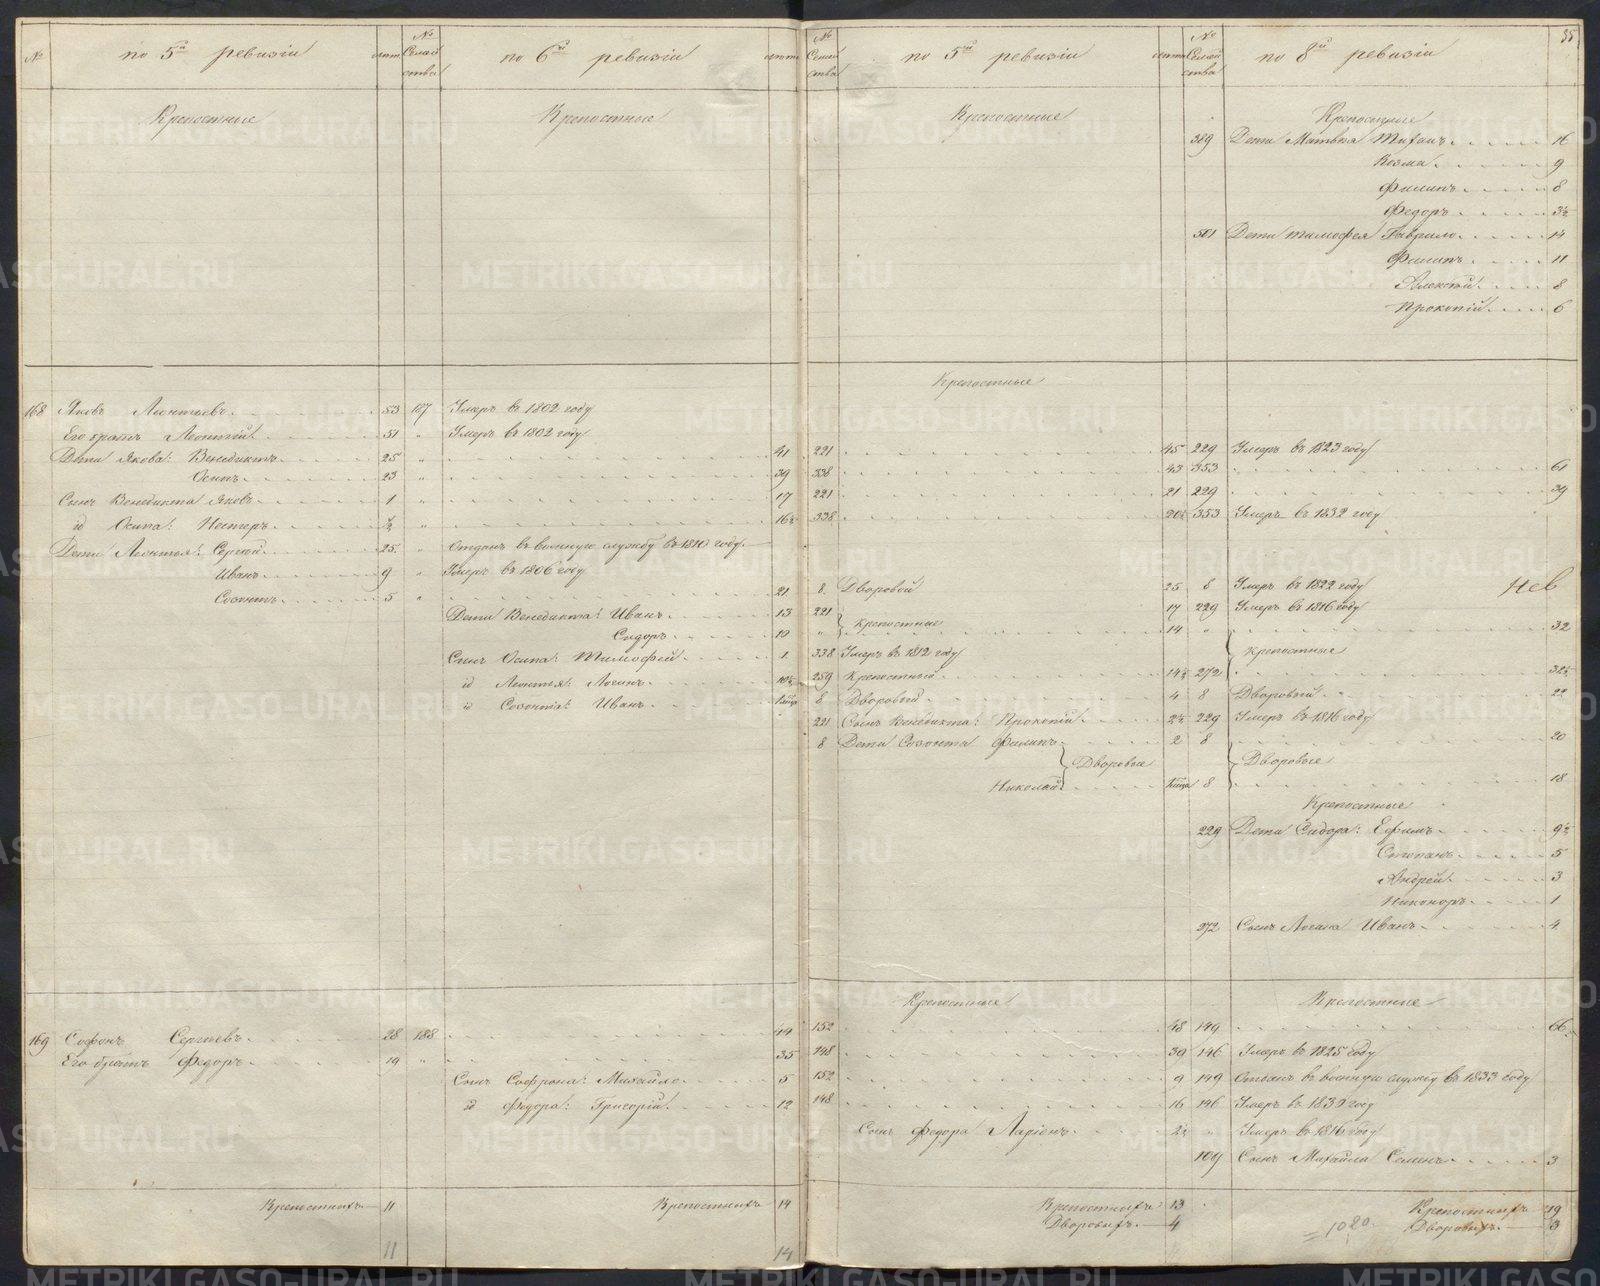 № по 5й ревизіи лѣта № Семей ства по 6й ревизіи лѣта № Семей ства по 5й ревизіи лѣта № Семей ства по 8й ревизіи 35
Крепостные Крепостные Крепостные Крепостные
389 Дети Матвея Тихонъ 16
Козма 9
Филипъ 8
Федоръ 3½
501 Дети Тимофея Гаврило 14
Филипъ 11
Алексѣй 8
Прокопій 6
Крепостные
168 Яковъ Леонтьевъ 53 187 Умеръ въ 1802 году
Его братъ Леонтій 51 „ Умеръ въ 1802 году
Дети Якова: Венедиктъ 25 „ 41 221 45 229 Умеръ въ 1823 году
Осипъ 23 „ 39 338 43 353 61
Сынъ Венедикта Яковъ 1 „ 17 221 21 229 39
id Осипа: Нестеръ ½ „ 16½ 338 20½ 353 Умеръ въ 1832 году
Дети Леонтья: Сергей 25 „ Отданъ въ военную службу въ 1810 году
Иванъ 9 „ Умеръ въ 1806 году
Созонтъ 5 „ 21 8 Дворовой 25 8 Умеръ въ 1822 году Нев
Дети Венедикта: Иванъ 13 221 крепостные 17 229 Умеръ въ 1816 году
Сидоръ 10 „ 14 „ 32
крепостные
Сынъ Осипа: Тимофей 1 338 Умеръ въ 1812 году
id Леонтья: Логинъ 10½ 259 Крепостный 14½ 272 32½
id Созонта: Иванъ 8 Дворовый 4 8 Дворовый 22
221 Сынъ Венедикта: Прокопій 2½ 229 Умеръ въ 1816 году
8 Дети Созонта Филипъ 2 8 20
Дворовые Дворовые
Николай 8 18
Крепостные
229 Дети Сидора: Ефимъ 9½
Степанъ 5
Андрей 3
Никоноръ 1
272 Сынъ Логина Иванъ 4
Крепостные Крепостные
169 Софонъ Сергѣевъ 28 188 44 152 48 149 66
Его братъ Федоръ 19 „ 35 148 39 146 Умеръ въ 1825 году
Сынъ Софрона: Михайло 5 152 9 149 Отданъ въ военную службу въ 1833 году
id Федора: Григорій 12 148 16 146 Умеръ въ 1830 году
Сынъ Федора Ларіонъ 2½ Умеръ въ 1816 году
Сынъ Михайла Семенъ 3
Крепостныхъ 11 Крепостныхъ 14 Крепостныхъ 13 Крепостныхъ 19
Дворовыхъ 4 = 1080. Дворовыхъ 3
11 14
METRIKI.GASO-URAL.RU